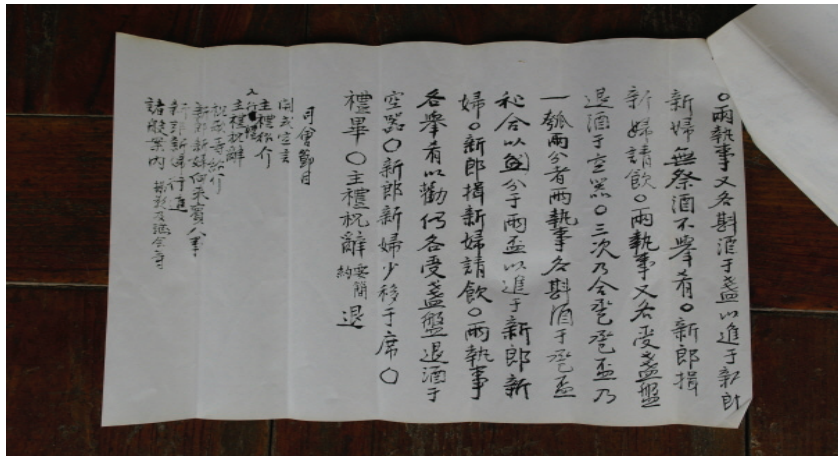 ○兩執事又各斟酒于盞以進于新郎
新婦無祭酒不擧肴○新郎揖
新婦請飮○兩執事又各受盞盤
退酒于空器○三次乃合巹巹盃乃
一瓠兩分者兩執事各斟酒于巹盃
和合以分于兩盃以進于新郎新
婦○新郎揖新婦請飮○兩執事
各擧肴以勸仍各受盞盤退酒于
空器○新郎新婦少移于席○
禮畢○主禮祝辭要簡約退
司會節目
開式宣言
主禮紹介
主禮祝辭
新郎新婦向來賓人事
新郎新婦行進
諸般案內